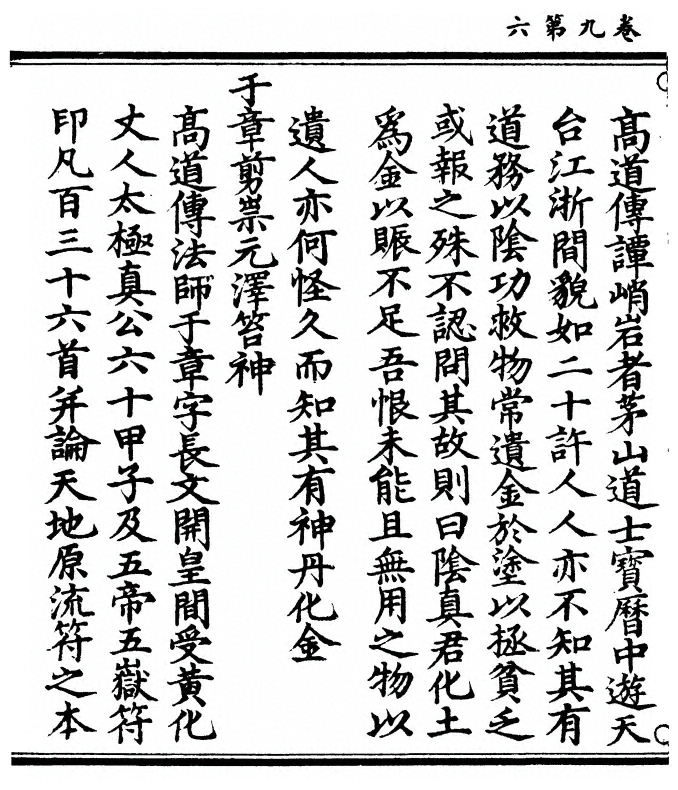 卷九第六
髙道傳譚峭岩者茅山道士寶曆中遊天
台江浙間貌如二十許人人亦不知其有
道務以陰功救物常遺金於塗以拯貧乏
或報之殊不認問其故則曰陰真君化土
為金以賑不足吾恨未能且無用之物以
遺人亦何怪久而知其有神丹化金
于章剪祟元澤笞神
髙道傳法師于章字長文開皇間受黃化
丈人太極真公六十甲子及五帝五嶽符
印凡百三十六首并論天地原流符之本